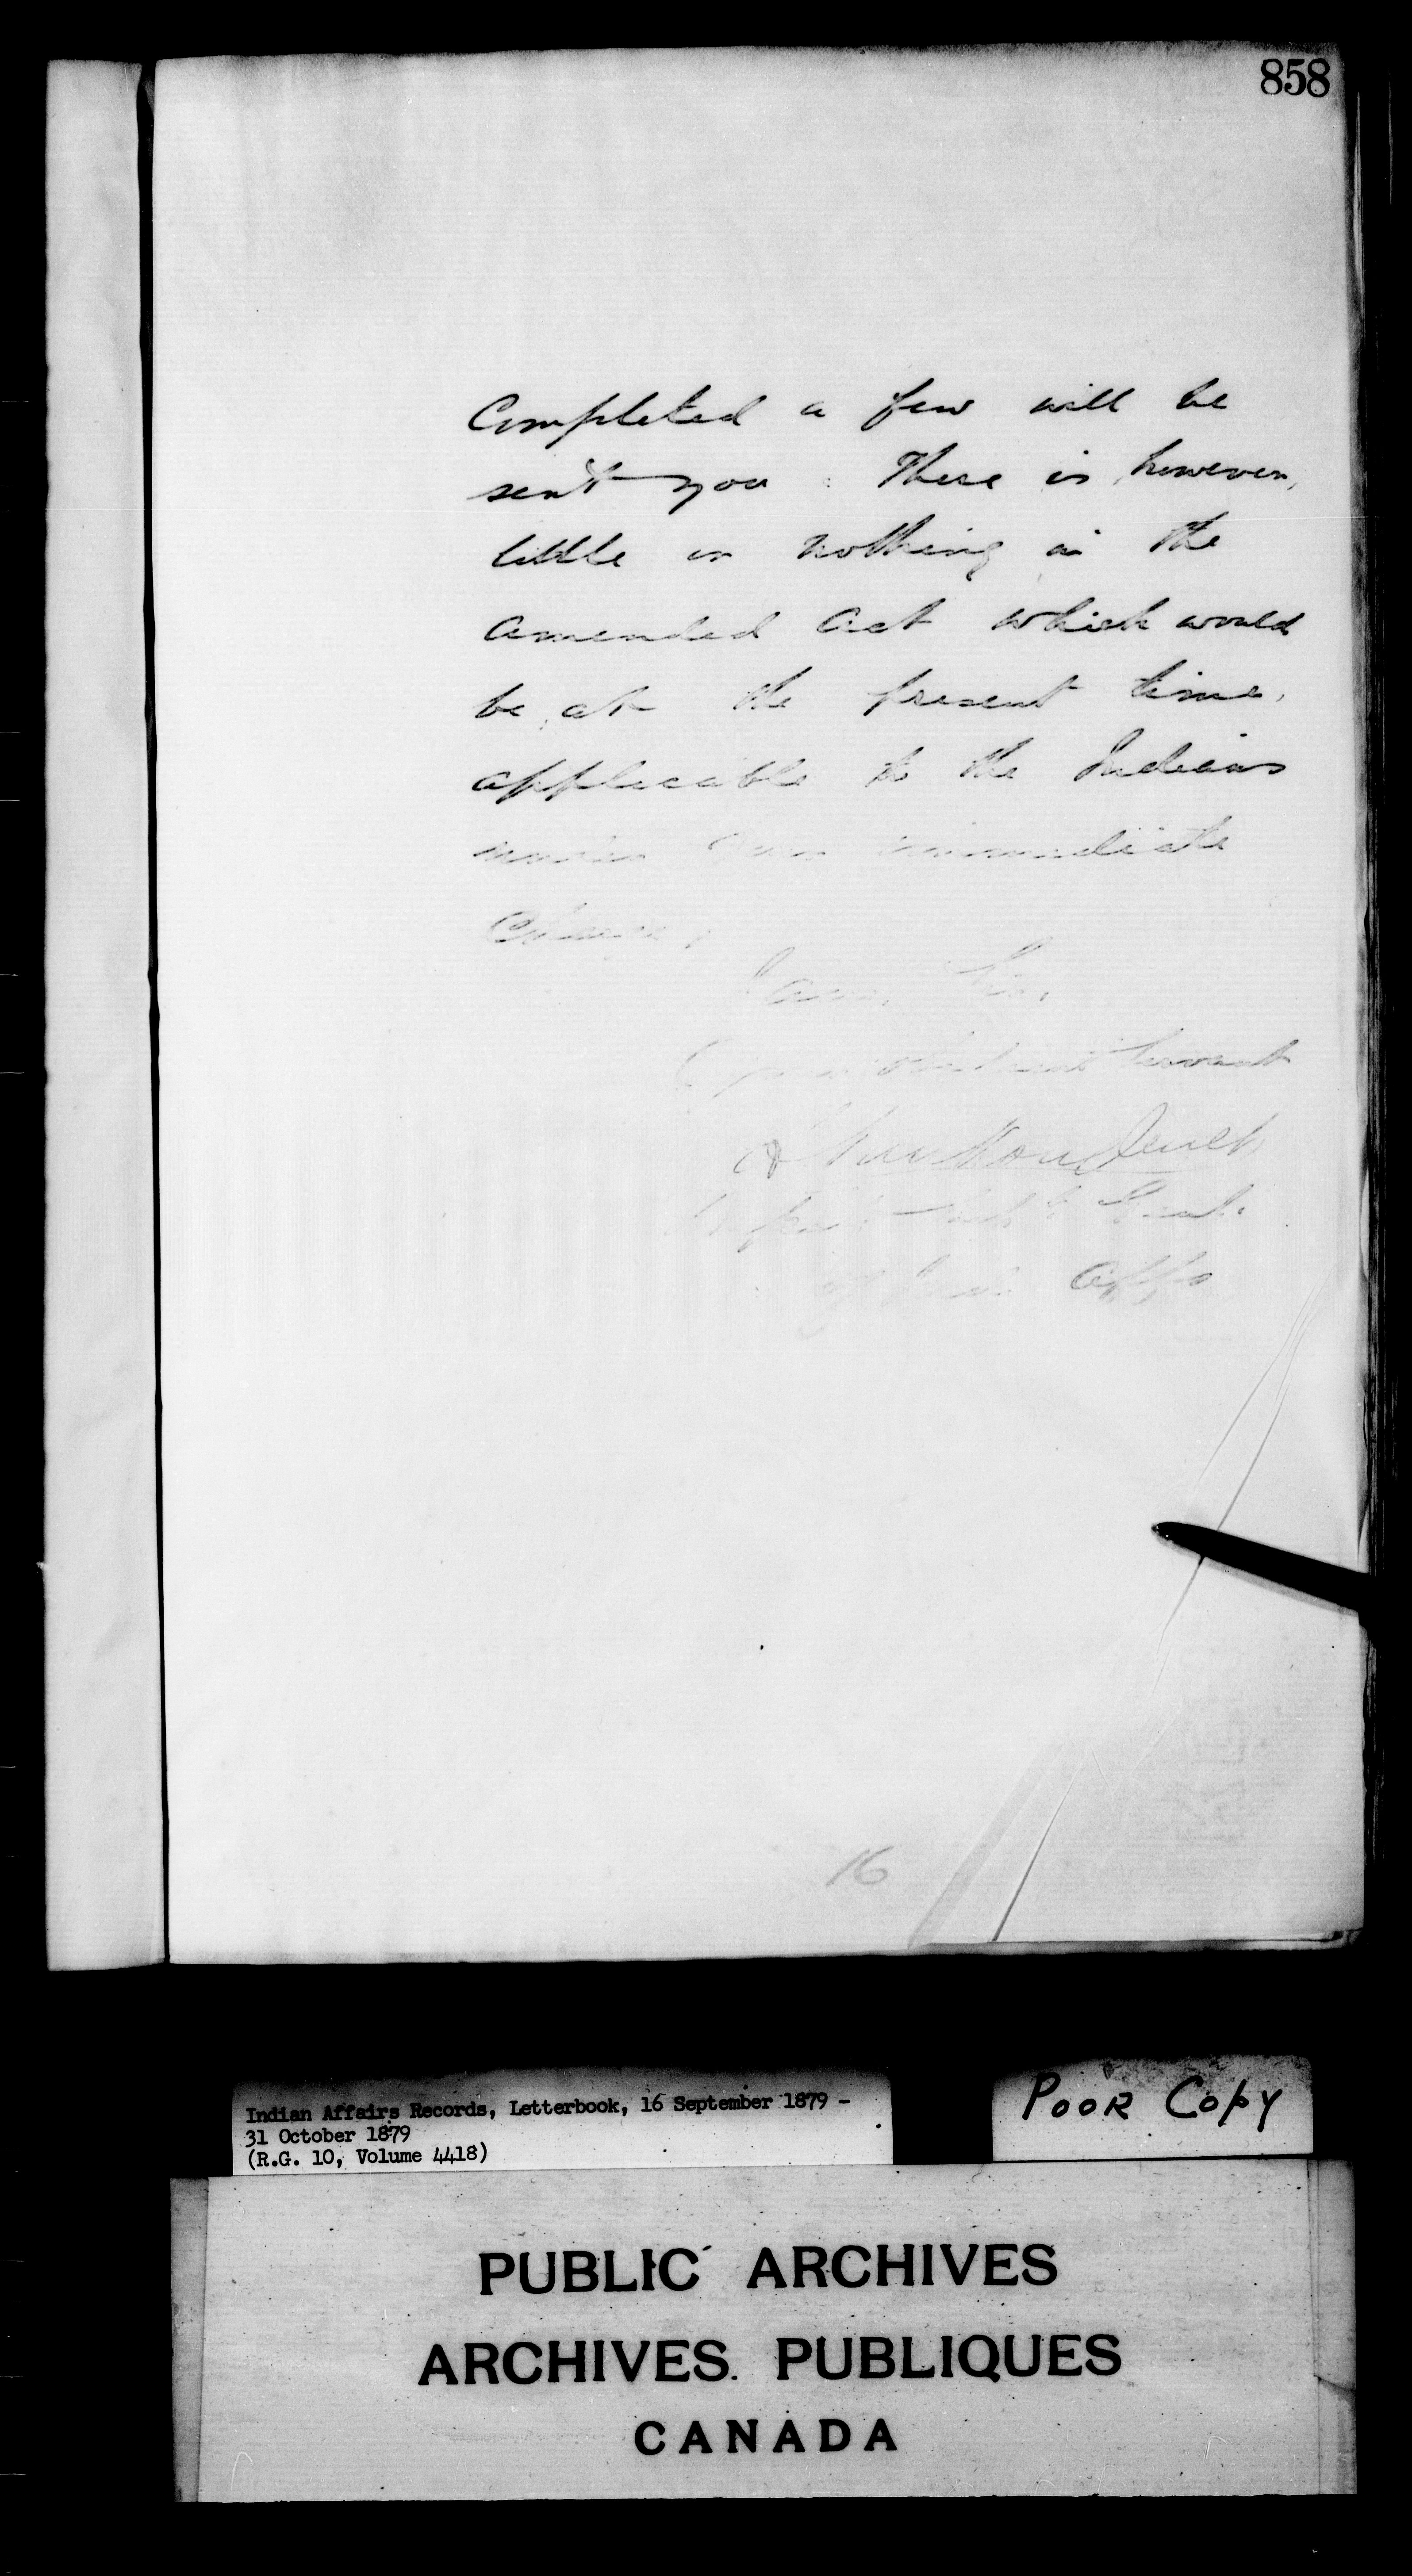 858
Completed a few will be
sent you. There is, however,
little or nothing in the
amended Act which would
be, at the present time,
applicable to the Indians
under your immediate
Charge,
I am, Sir,
Your obedient Servant
Supt Genl.
of Ind. Affs
16
Indian Affairs Records, Letterbook, 16 September 1879 -
31 October 1879
(R.G. 10, Volume 4418)
POOR COPY
PUBLIC ARCHIVES
ARCHIVES PUBLIQUES
CANADA